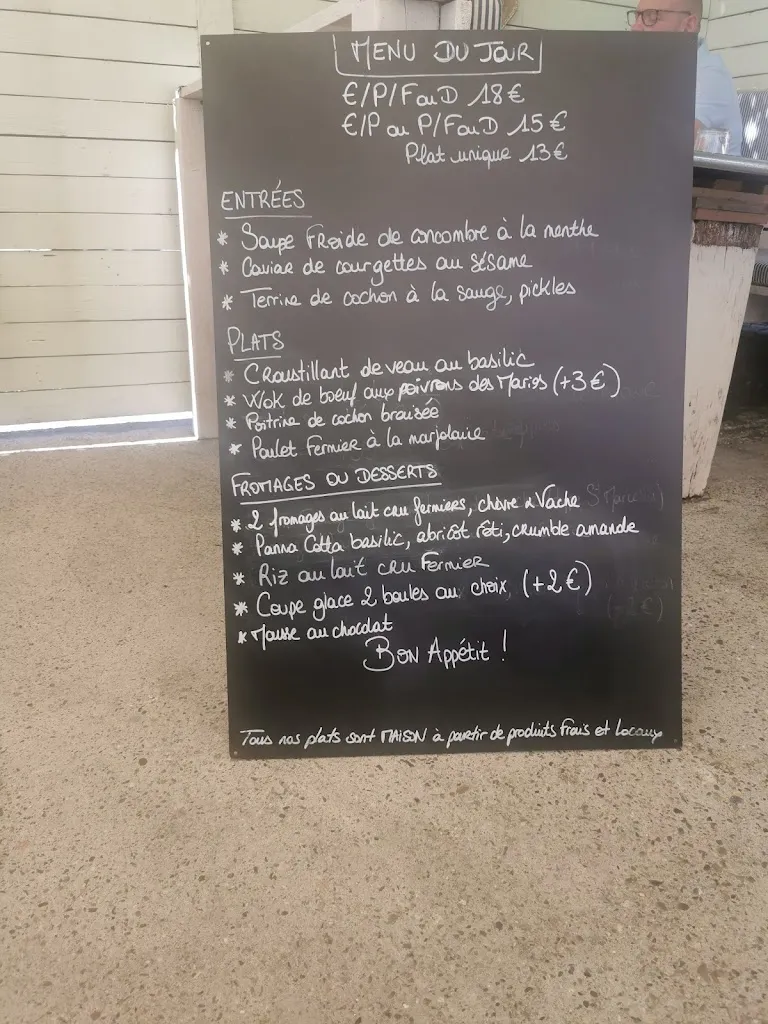 MENU DU JOUR
E/P/F ou D 18€
E/P ou P/F ou D 15€
Plat unique 13€
ENTRÉES
* Soupe Froide de concombre à la menthe
* Caviar de courgettes au sésame
* Terrine de cochon à la sauge, pickles
PLATS
* Croustillant de veau au basilic
* Wok de boeuf aux poivrons des Maries (+3€)
* Poitrine de cochon braisée
* Poulet Fermier à la marjolaine
FROMAGES OU DESSERTS
* 2 fromages au lait cru fermiers, chèvre & Vache
* Panna Cotta basilic, abricot rôti, crumble amande
* Riz au lait cru Fermier
* Coupe glace 2 boules au choix (+2€)
* Mousse au chocolat
BON Appétit !
Tous nos plats sont MAISON à partir de produits Frais et Locaux